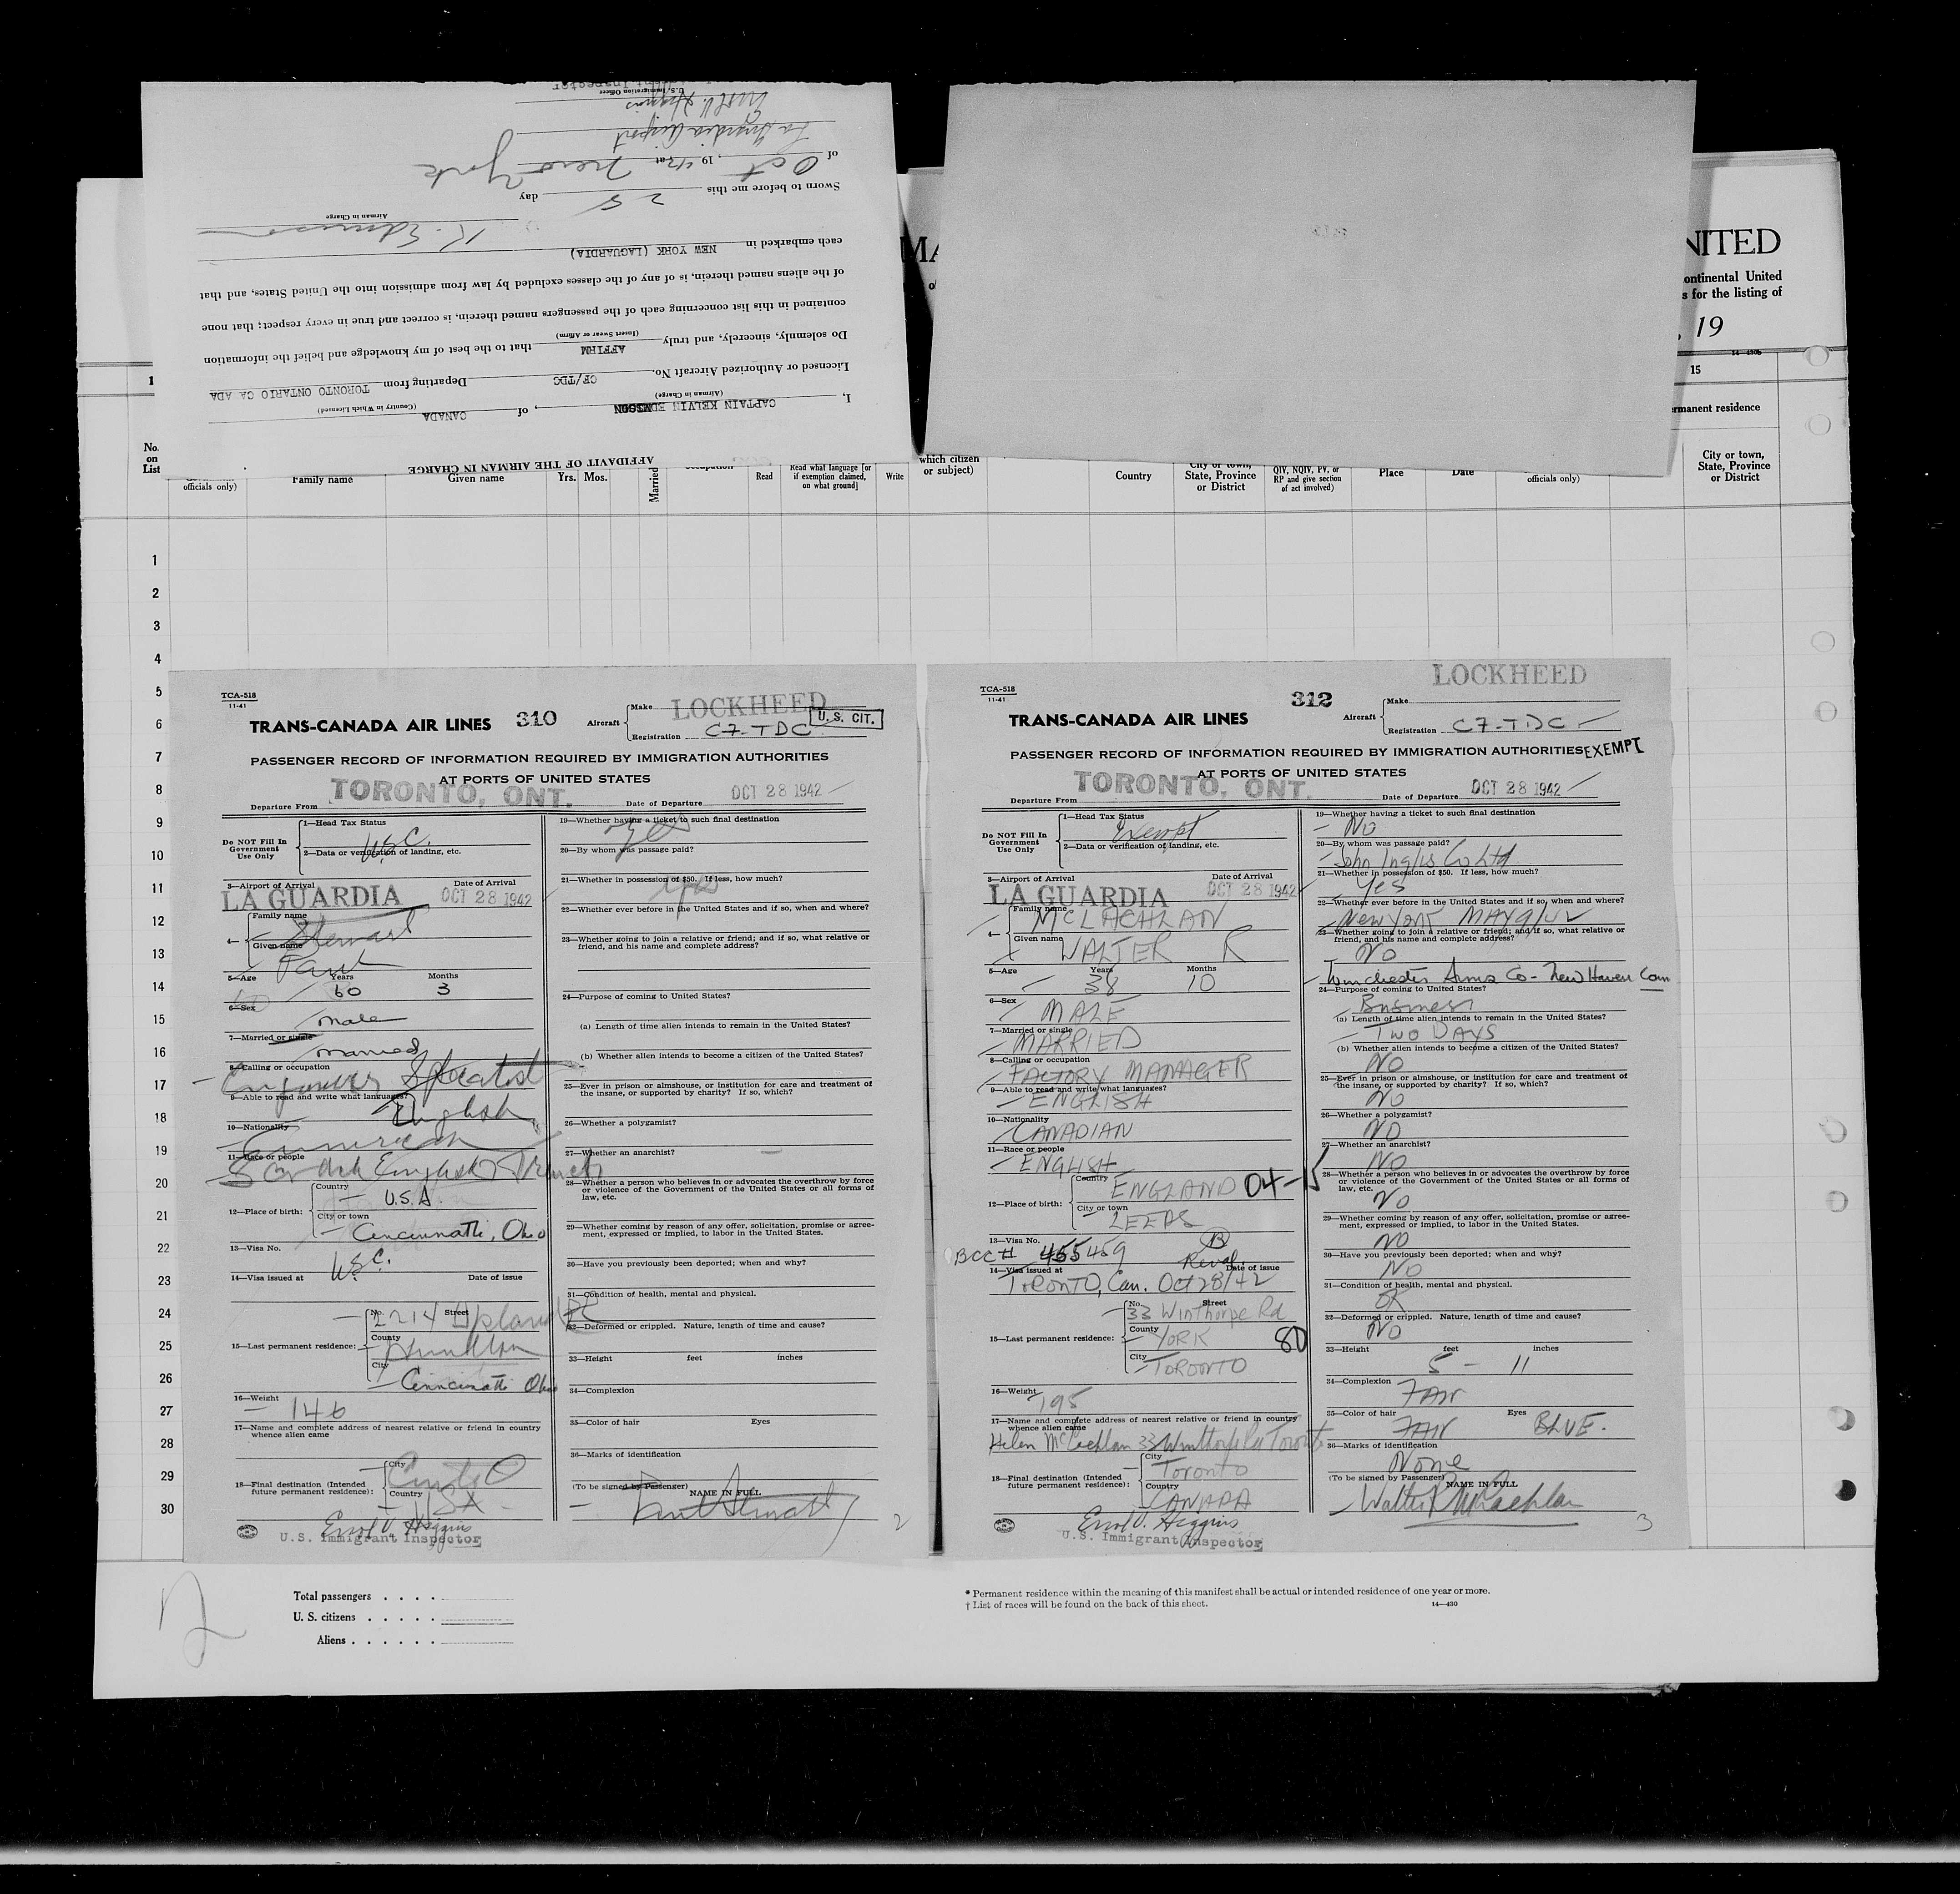 AFFIDAVIT OF THE AIRMAN IN CHARGE
I, CAPTAIN KELVIN , of CANADA
(Airman in Charge) (Country in Which Licensed)
Licensed or Authorized Aircraft No. CF/TDC Departing from TORONTO ONTARIO CA ADA
Do solemnly, sincerely, and truly AFFIRM that to the best of my knowledge and belief the information
(Insert Swear or Affirm)
contained in this list concerning each of the passengers named therein, is correct and true in every respect; that none
of the aliens named therein, is of any of the classes excluded by law from admission into the United States, and that
each embarked in NEW YORK (LAGUARDIA)
Airman in Charge
Sworn to before me this day
of Oct , 1942 at New York
La Guardia Airport
U.S. Immigration Officer
MA
NITED
ontinental United
s for the listing of
, 19
14—430b
1
15
rmanent residence
No. on List
officials only)
Family name
Given name
Yrs. Mos.
Married
Read
Read what language [or if exemption claimed, on what ground]
Write
which citizen or subject)
Country
City or town, State, Province or District
QIV, NQIV, PV, or RP and give section of act involved)
Place
Date
officials only)
City or town, State, Province or District
1
2
3
4
5
6
7
8
9
10
11
12
13
14
15
16
17
18
19
20
21
22
23
24
25
26
27
28
29
30
TCA-518
11-41
TRANS-CANADA AIR LINES 310
Aircraft Make LOCKHEED
Registration C7-TDC
U. S. CIT.
PASSENGER RECORD OF INFORMATION REQUIRED BY IMMIGRATION AUTHORITIES
AT PORTS OF UNITED STATES
Departure From TORONTO, ONT. Date of Departure OCT 28 1942
Do NOT Fill In Government Use Only
1—Head Tax Status
U.S.C.
2—Data or verification of landing, etc.
3—Airport of Arrival Date of Arrival
LA GUARDIA OCT 28 1942
4— Family name Stewart
Given name Paul
5—Age Years 60 Months 3
6—Sex
Male
7—Married or single
Married
8—Calling or occupation
9—Able to read and write what languages?
English
10—Nationality
American
11—Race or people
12—Place of birth: Country U.S.A.
City or town Cincinnatti, Ohio
13—Visa No.
U.S.C.
14—Visa issued at Date of issue
15—Last permanent residence: No. Street 2214 Upland
County
City Cinncinatti Ohio
16—Weight
146
17—Name and complete address of nearest relative or friend in country
whence alien came
18—Final destination (Intended future permanent residence): City
Country USA
Errol V. Higgins
U.S. Immigrant Inspector
19—Whether having a ticket to such final destination
yes
20—By whom was passage paid?
21—Whether in possession of $50. If less, how much?
yes
22—Whether ever before in the United States and if so, when and where?
23—Whether going to join a relative or friend; and if so, what relative or
friend, and his name and complete address?
24—Purpose of coming to United States?
(a) Length of time alien intends to remain in the United States?
(b) Whether alien intends to become a citizen of the United States?
25—Ever in prison or almshouse, or institution for care and treatment of
the insane, or supported by charity? If so, which?
26—Whether a polygamist?
27—Whether an anarchist?
28—Whether a person who believes in or advocates the overthrow by force
or violence of the Government of the United States or all forms of
law, etc.
29—Whether coming by reason of any offer, solicitation, promise or agree-
ment, expressed or implied, to labor in the United States.
30—Have you previously been deported; when and why?
31—Condition of health, mental and physical.
32—Deformed or crippled. Nature, length of time and cause?
33—Height feet inches
34—Complexion
35—Color of hair Eyes
36—Marks of identification
(To be signed by Passenger) NAME IN FULL
Paul Stewart
2
TCA-518
11-41
TRANS-CANADA AIR LINES 312
Aircraft Make LOCKHEED
Registration C7-TDC
PASSENGER RECORD OF INFORMATION REQUIRED BY IMMIGRATION AUTHORITIES EXEMPT
AT PORTS OF UNITED STATES
Departure From TORONTO, ONT. Date of Departure OCT 28 1942
Do NOT Fill In Government Use Only
1—Head Tax Status
Exempt
2—Data or verification of landing, etc.
3—Airport of Arrival Date of Arrival
LA GUARDIA OCT 28 1942
4— Family name McLACHLAN
Given name WALTER R
5—Age Years 38 Months 10
6—Sex
MALE
7—Married or single
MARRIED
8—Calling or occupation
FACTORY MANAGER
9—Able to read and write what languages?
ENGLISH
10—Nationality
CANADIAN
11—Race or people
ENGLISH
12—Place of birth: Country ENGLAND 04-15
City or town LEEDS
13—Visa No.
BCC# 455459
14—Visa issued at Date of issue
TORONTO, Can. Oct 28/42
15—Last permanent residence: No. Street 33 Winthorpe Rd
County YORK 80
City TORONTO
16—Weight
195
17—Name and complete address of nearest relative or friend in country
whence alien came
Helen McLachlan 33 Winthorpe Rd Toronto
18—Final destination (Intended future permanent residence): City Toronto
Country CANADA
Errol V. Higgins
U.S. Immigrant Inspector
19—Whether having a ticket to such final destination
No
20—By whom was passage paid?
John Inglis Co Ltd
21—Whether in possession of $50. If less, how much?
Yes
22—Whether ever before in the United States and if so, when and where?
New York MAY
23—Whether going to join a relative or friend; and if so, what relative or
friend, and his name and complete address?
NO
Winchester Arms Co - New Haven Conn
24—Purpose of coming to United States?
Business
(a) Length of time alien intends to remain in the United States?
TWO DAYS
(b) Whether alien intends to become a citizen of the United States?
NO
25—Ever in prison or almshouse, or institution for care and treatment of
the insane, or supported by charity? If so, which?
NO
26—Whether a polygamist?
NO
27—Whether an anarchist?
NO
28—Whether a person who believes in or advocates the overthrow by force
or violence of the Government of the United States or all forms of
law, etc.
NO
29—Whether coming by reason of any offer, solicitation, promise or agree-
ment, expressed or implied, to labor in the United States.
NO
30—Have you previously been deported; when and why?
NO
31—Condition of health, mental and physical.
OK
32—Deformed or crippled. Nature, length of time and cause?
NO
33—Height feet inches
5 - 11
34—Complexion
FAIR
35—Color of hair Eyes
FAIR BLUE.
36—Marks of identification
None
(To be signed by Passenger) NAME IN FULL
Walter R McLachlan
3
2
Total passengers . . . .
U. S. citizens . . . . .
Aliens . . . . . .
* Permanent residence within the meaning of this manifest shall be actual or intended residence of one year or more.
† List of races will be found on the back of this sheet.
14—430